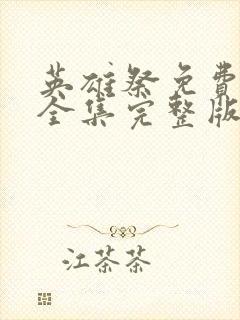 英雄祭免费
全集完整版
江茶茶